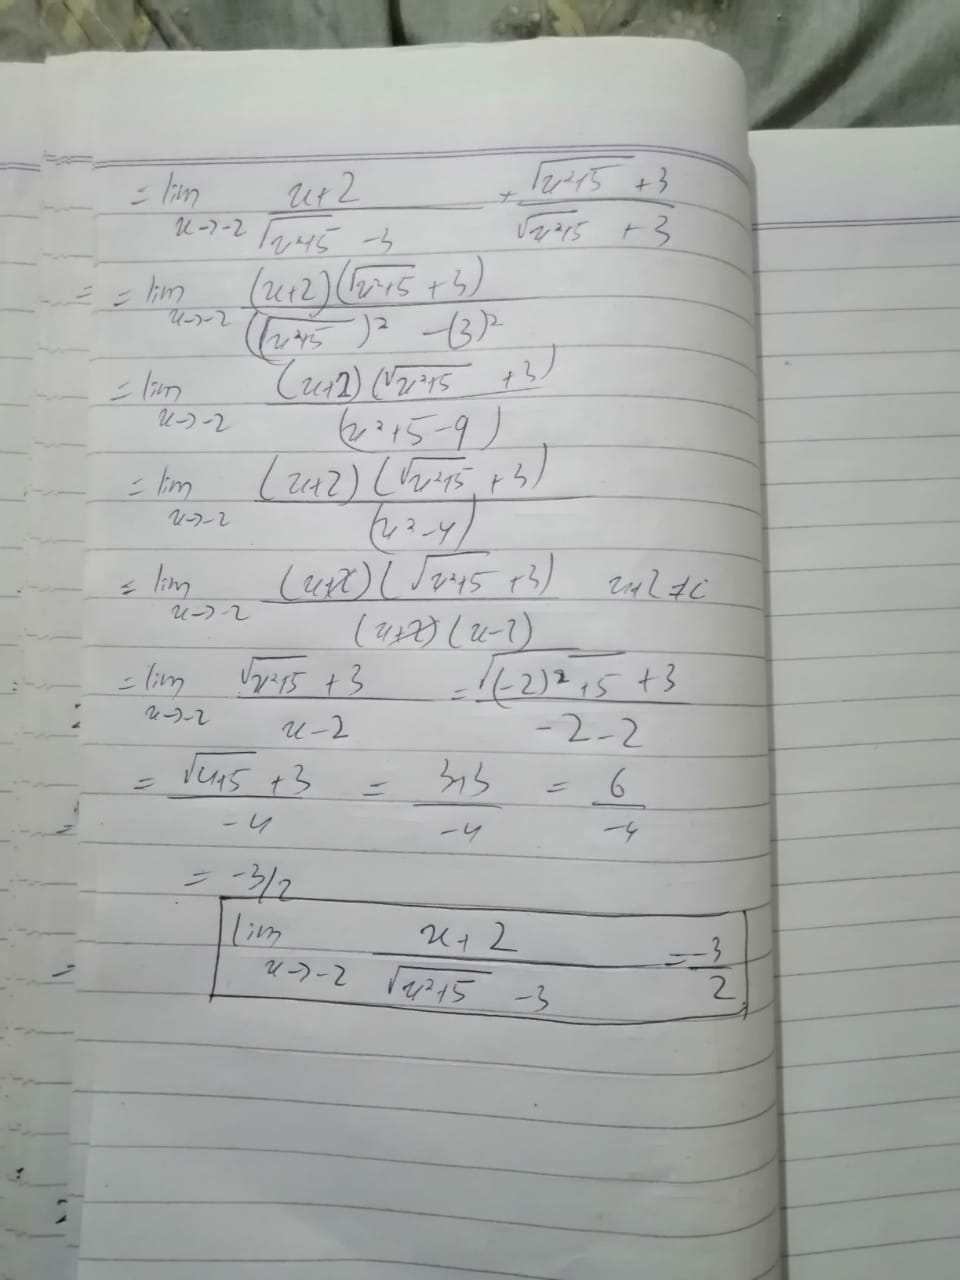 = lim x→-2 x+2 / √x²+5 -3 + √x²+5 +3 / √x²+5 +3
= = lim x→-2 (x+2)(√x²+5 +3) / (√x²+5)² -(3)²
= lim x→-2 (x+2)(√x²+5 +3) / (x²+5-9)
= lim x→-2 (x+2)(√x²+5 +3) / (x²-4)
= lim x→-2 (x+2)(√x²+5 +3) / (x+2)(x-2) x+2≠0
= lim x→-2 √x²+5 +3 / x-2 = √(-2)²+5 +3 / -2-2
= √4+5 +3 / -4 = 3+3 / -4 = 6 / -4
= -3/2
lim x→-2 x+2 / √x²+5 -3 = -3/2